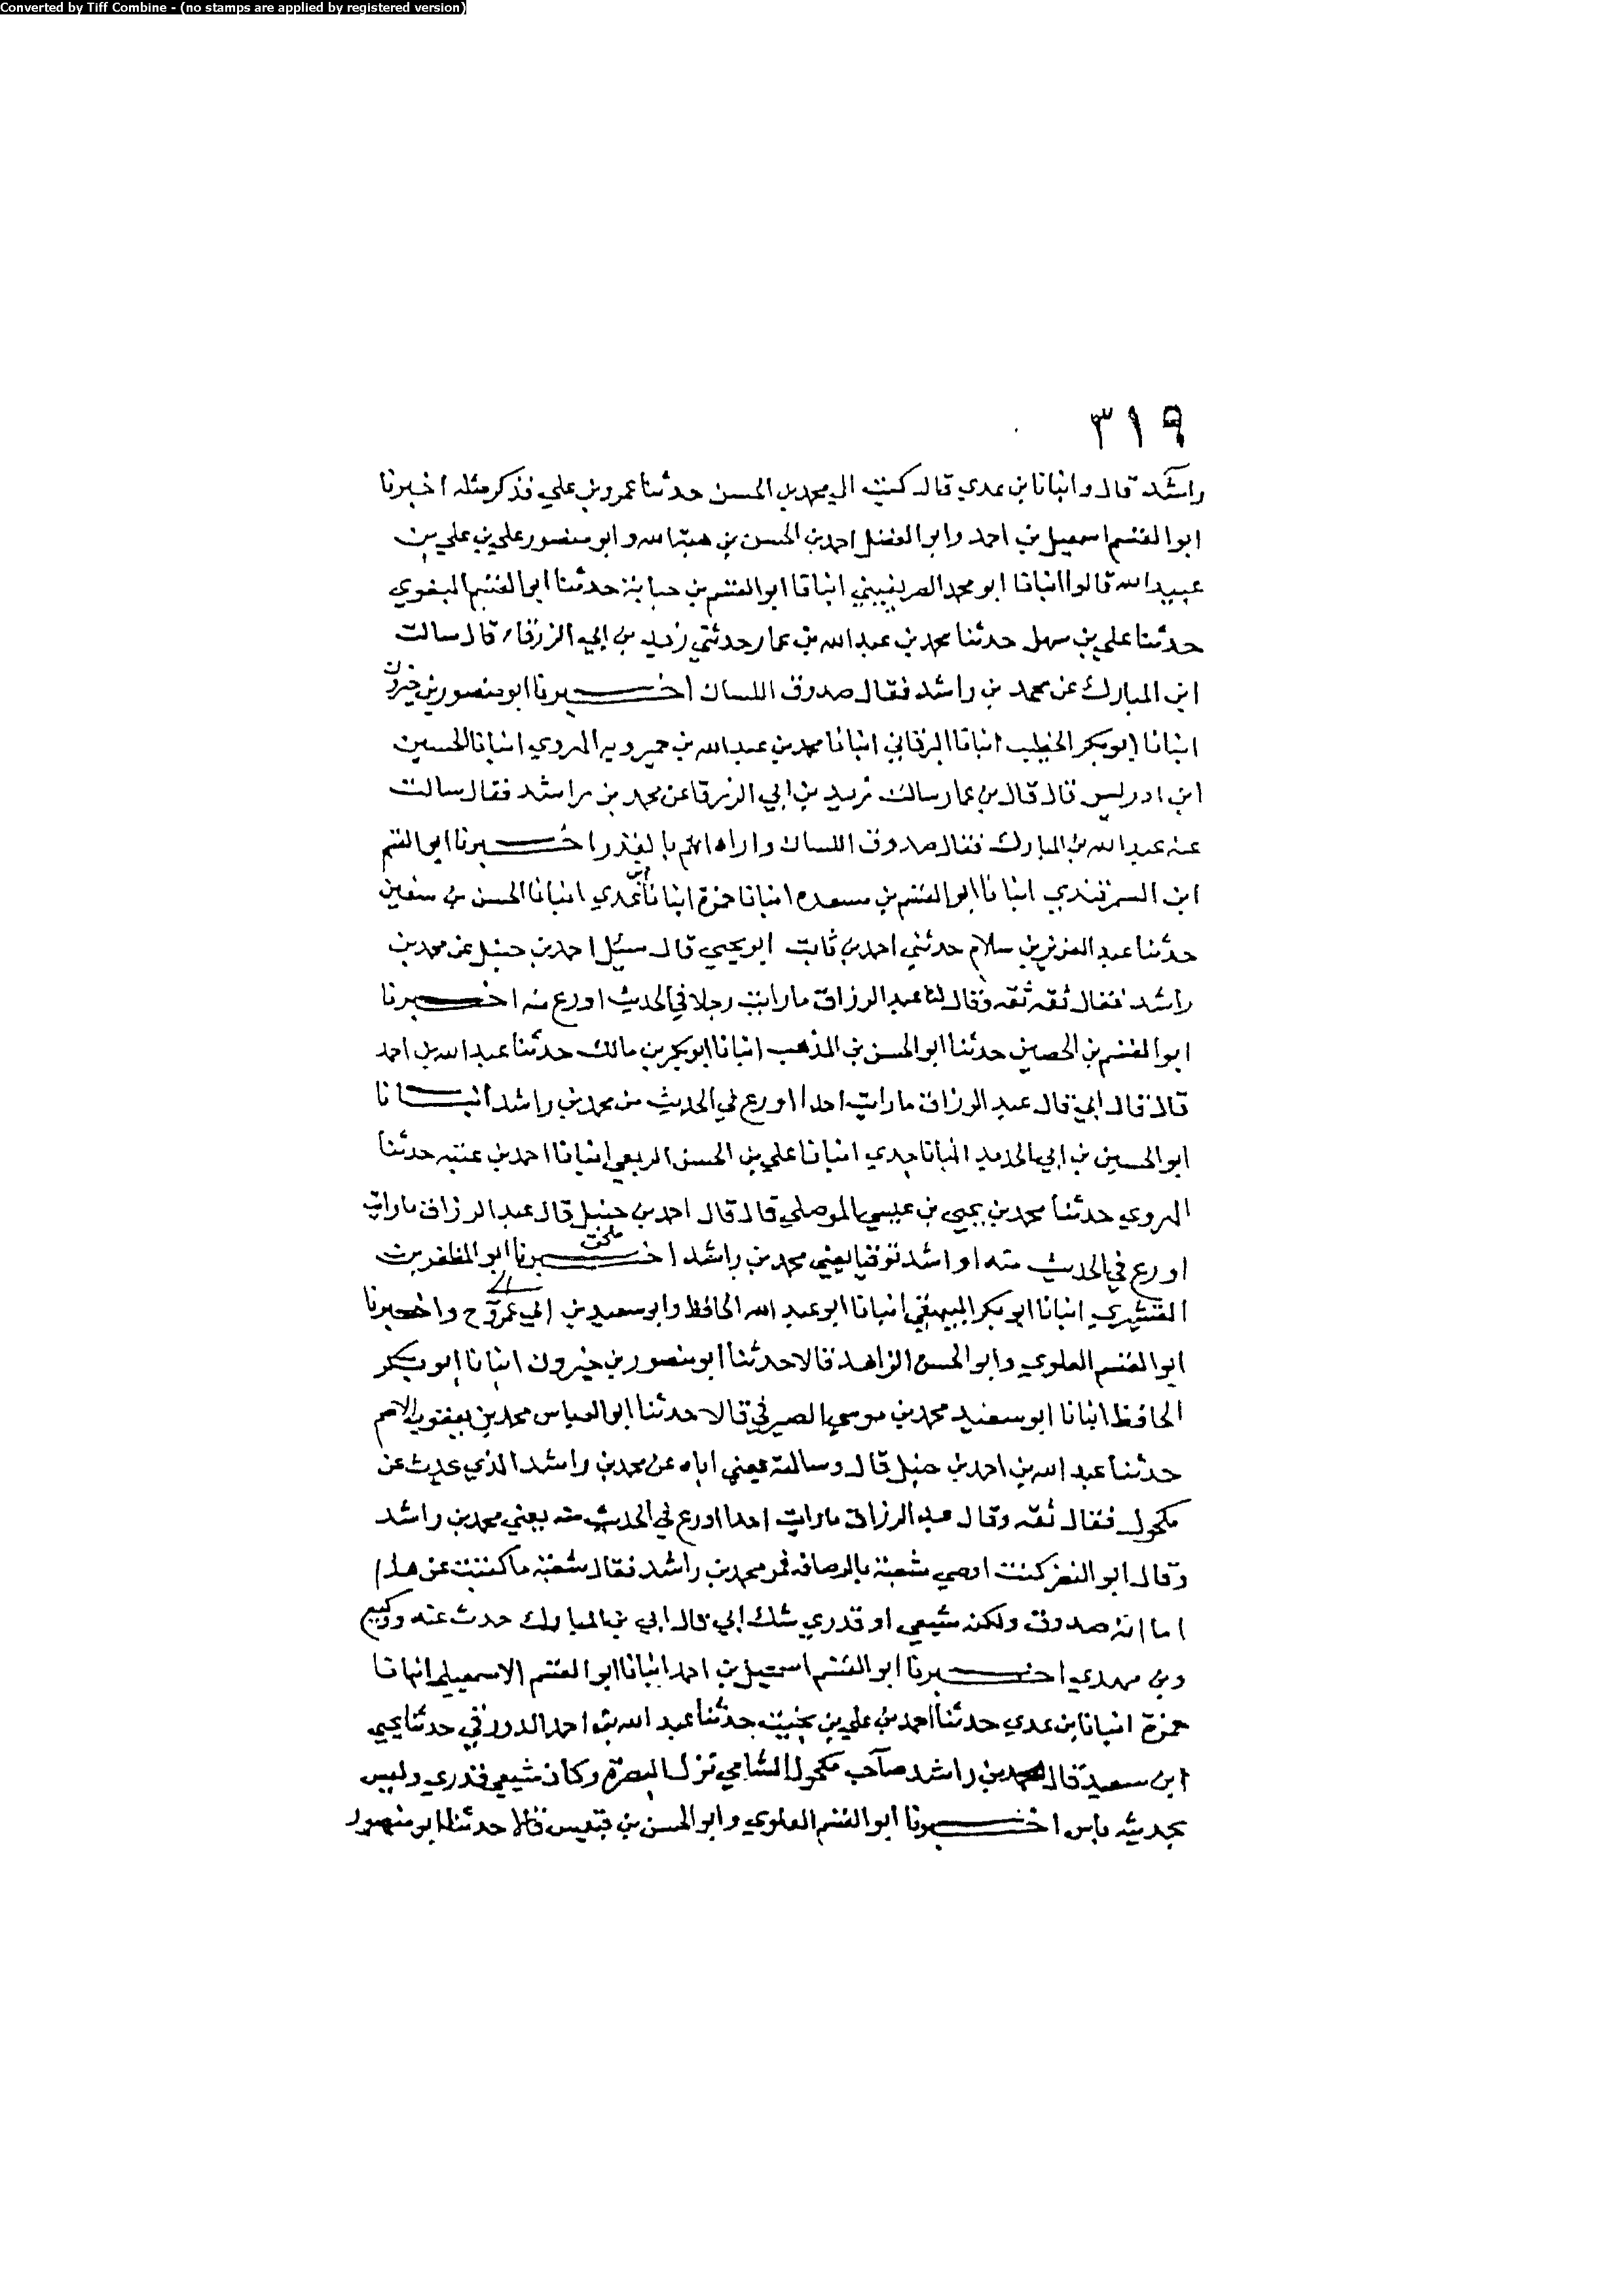 Converted by Tiff Combine - (no stamps are applied by registered version)
٣١٩
راشد قال وانبانا بن عدي قال كتب الي محمد بن الحسن حدثنا عمرو بن علي فذكر مثله اخبرنا
ابوالقسم اسمعيل بن احمد وابوالفضل احمد بن الحسن بن هبة الله وابو منصور علي بن علي بن
عبيد الله قالوا انبانا ابو محمد الصريفيني انبانا ابوالقسم بن حبابة حدثنا ابوالقسم البغوي
حدثنا علي بن سهل حدثنا محمد بن عبد الله بن عمار حدثني زيد بن ابي الزرقاء قال سالت
ابن المبارك عن محمد بن راشد فقال صدوق اللسان اخبرنا ابو منصور بن خيرون
انبانا ابو بكر الخطيب انبانا البرقاني انبانا محمد بن عبد الله بن خميرويه الهروي انبانا الحسين
ابن ادريس قال قال بن عمار سالت زيد بن ابي الزرقا عن محمد بن راشد فقال سالت
عنه عبد الله بن المبارك فقال صدوق اللسان واراه اتهم بالقدر اخبرنا ابوالقسم
ابن السمرقندي انبانا ابوالقسم بن مسعدة انبانا حمزة انبانا ابن عدي انبانا الحسن بن سفين
حدثنا عبد العزيز بن سلام حدثني احمد بن ثابت ابو يحيي قال سئل احمد بن حنبل عن محمد بن
راشد فقال ثقه ثقه وقال لنا عبد الرزاق ما رايت رجلا في الحديث اورع منه اخبرنا
ابوالقسم بن الحصين حدثنا ابوالحسن بن المذهب انبانا ابوبكر بن مالك حدثنا عبد الله بن احمد
قال قال ابي قال عبد الرزاق ما رايت احدا اورع في الحديث من محمد بن راشد انبانا
ابوالحسين بن ابي الحديد انبانا جدي انبانا علي بن الحسن الربعي انبانا احمد بن عتبه حدثنا
الهروي حدثنا محمد بن يحيى بن عيسي الموصلي قال قال احمد بن حنبل قال عبد الرزاق ما رايت
اورع في الحديث منه او اشد توقيا يعني محمد بن راشد اخبرنا ابو المظفر بن
القشيري انبانا ابو بكر البيهقي انبانا ابو عبد الله الحافظ وابو سعيد بن ابي عمرو ح واخبرنا
ابوالقسم العلوي وابوالحسن الزاهد قالا حدثنا ابو منصور بن خيرون انبانا ابو بكر
الحافظ انبانا ابو سعيد محمد بن موسي الصيرفي قالا حدثنا ابوالعباس محمد بن يعقوب الاصم
حدثنا عبد الله بن احمد بن حنبل قال وسالته يعني اباه عن محمد بن راشد الذي يحدث عن
مكحول فقال ثقه وقال عبد الرزاق ما رايت احدا اورع في الحديث منه يعني محمد بن راشد
وقال ابو النضر كنت اوصي شعبة بالرصافه فمر محمد بن راشد فقال شعبة ما كتبت عن هذا
اما انه صدوق ولكنه شيعي او قدري شك ابي قال ابي بن المبارك حدث عنه ووكيع
وبن مهدي اخبرنا ابوالقسم اسمعيل بن احمد انبانا ابوالقسم الاسمعيلي انبانا
حمزة انبانا بن عدي حدثنا احمد بن علي بن بخيت حدثنا عبد الله بن احمد الدورقي حدثنا يحيي
ابن سعيد قال محمد بن راشد صاحب مكحول الشامي نزل البصرة وكان شيعي قدري وليس
بحديثه باس اخبرنا ابوالقسم العلوي وابوالحسن بن قبيس قالا حدثنا ابو منصور